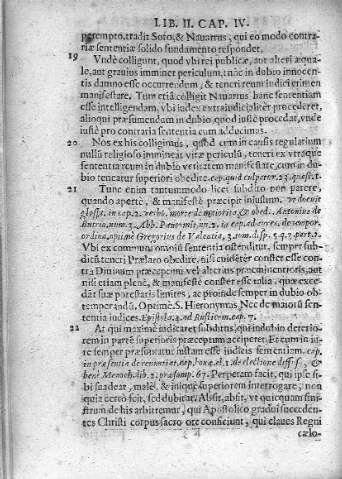 LIB. II. CAP. IV.
perempto, tradit Soto, & Nauarrus, qui eo modo contra-
riæ sententiæ solido fundamento respondet.
19 Vndè colligunt, quod vbi rei publicæ, aut alteri æqua-
le, aut grauius imminet periculum, tunc in dubio innocen-
tis damno esse occurrendum, & teneri reum iudici crimen
manifestare. Tum etiã colligit Nauarrus hanc sententiam
esse intelligendam, vbi iudex extraiudicialiter procederet,
alioqui præsumendum in dubio, quod iustè procedat,
iustè pro contraria sententia cum adducimus.
20 Nos ex his colligimus, quòd cum in causis regularium
nullũ religioso immineat vitæ periculũ, teneri ex vtraque
sententia reum in dubio veritatem manifestare, cum in du-
bio teneatur superiori obedire. cap. quid culpatur 23. quæst. 1.
21 Tunc enim tantummodo licet subdito non parere,
quando apertè, & manifestè præcipit iniustum.
glossa in cap. 2. verbo, de maiorit. & obed. Antonius de
Butrio, num. 3. Abb. Panormit.
ordin. Gregorius de Valentia, 3. tom. disp. 5. q. 7. part. 3.
Vbi ex communi omniũ sententia ostenditur, semper subdi-
tũ teneri Prælato obedire, nisi euidèter constet esse con-
tra Diuinum præceptum vel alterius præeminentioris, aut
nisi etiam plenè, & manifestè constet esse talia, quæ exce-
dãt suæ potestatis limites, ac proinde semper in dubio ob-
temperãdũ. Optimè S. Hieronymus. Nec de maiorũ sen-
tentia iudices. Epistola 4. ad Rusticum. cap. 7.
22 At qui maximè iudicaret subditus, qui in dubio deterio-
rem in partẽ superioris præceptum acciperet. Et cum in iu-
re semper præsumatur iustam esse iudicis sententiam. cap.
in præsentia de renuntiat. cap.
Menoch. lib. 2. præsump. 67. Perperam facit, qui ipse si-
bi suadeat, malè, & iniquè superiorem interrogare, non
quia certò scit, sed dubitat. Absit, absit, vt quicquam sini-
strum de his arbitremur, qui Apostolico gradui succeden-
tes Christi corpus sacro ore conficiunt, qui claues Regni
cælo-